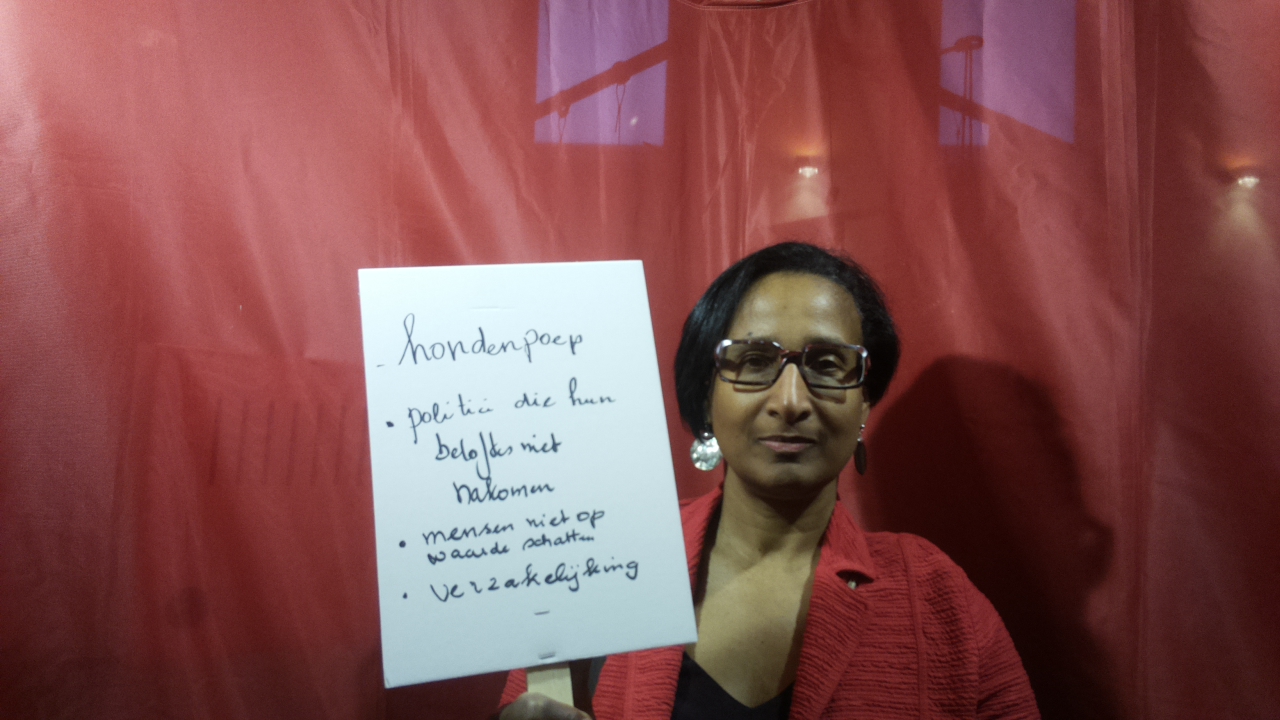 - hondenpoep
• politici die hun
beloftes niet
nakomen
• mensen niet op
waarde schatten
• verzakelijking